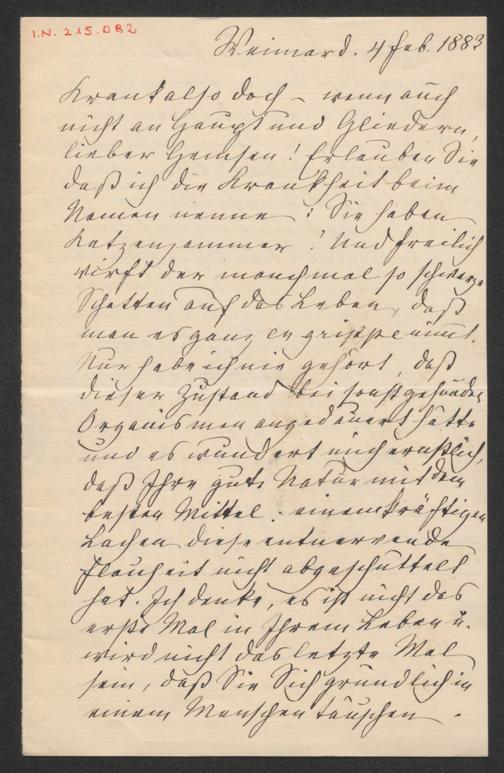 I.N. 215.082
Weimar d. 4 Feb. 1883
Krank also doch – wenn auch
nicht an Haupt und Gliedern,
lieber Hemsen! Erlauben Sie
daß ich die Krankheit beim
Namen nenne: Sie haben
Katzenjammer! Und freilich
wirft der manchmal so schwarze
Schatten auf das Leben, daß
man es ganz en grippe nimmt.
Nur habe ich nie gehört, daß
dieser Zustand bei sonst gesunden
Organismen angedauert hätte
und es wundert mich ernstlich,
daß Ihre gute Natur mit dem
besten Mittel: einem kräftigen
Lachen diese entnervende
Flauheit nicht abgeschüttelt
hat. Ich denke, es ist nicht das
erste Mal in Ihrem Leben u.
wird nicht das letzte Mal
sein, daß Sie Sich gründlich in
einem Menschen täuschen.